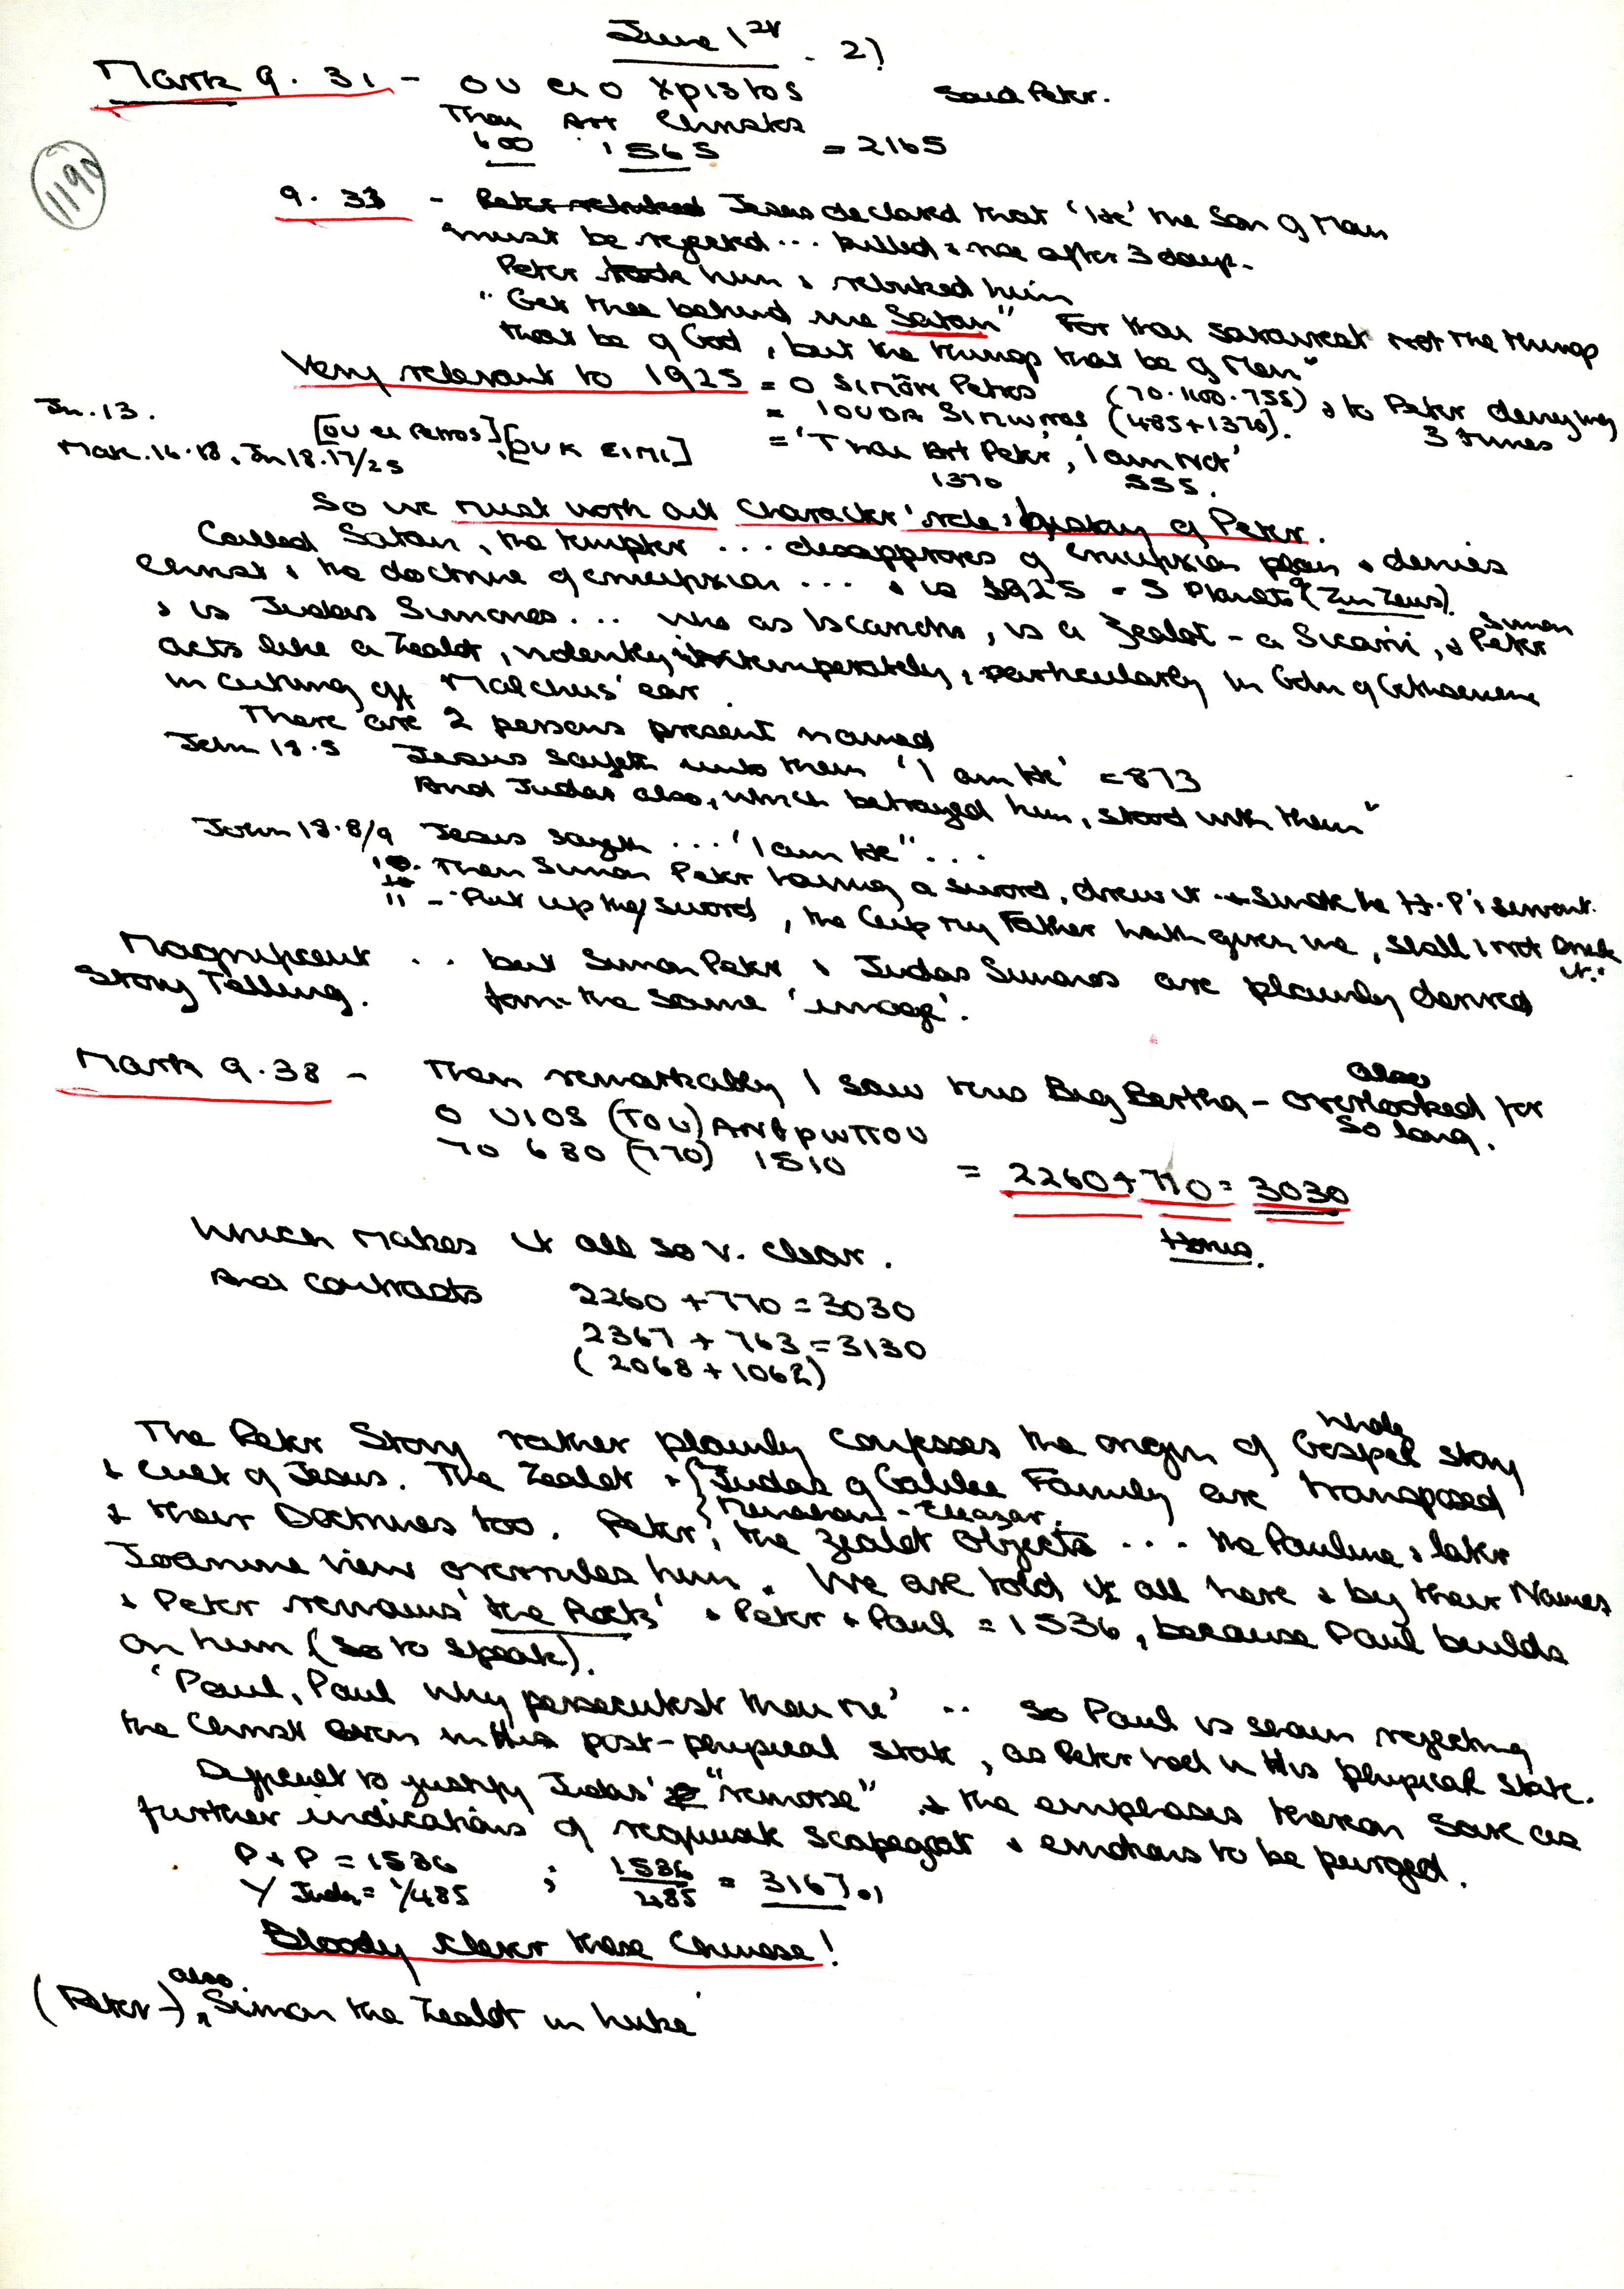 June 1st. 2)
Mark 9.31 - ου ει ο χριstos Said Peter.
Thou Art Christos
600 1565 = 2165
1190
9.33 - Peter rebuked Jesus declared that 'He' the Son of Man
must be rejected ... killed & rise after 3 days.
Peter took him & rebuked him
"Get thee behind me Satan" For thou savourest not the things
that be of God, but the things that be of Men"
Very relevant to 1925 = O Simōn Petros (70.1100.755) & to Peter denying
3 times
Jn.13. = ιουδα Siμωνος (485+1370).
Mat.16.18, Jn 18.17/25 [ου ει Petros],[ουκ ειμι] = 'Thou Art Peter', 'I am Not'
1370 555.
So we must work out Character & role & history of Peter.
Called Satan, the tempter ... disapproves of crucifixion plan & denies
Christ & the doctrine of crucifixion ... & is 1925 = 5 Planets (Zeus).
& is Judas Simones... who as Iscariot, is a Zealot - a Sicarii, & Simon Peter
acts like a Zealot, violently, intemperately, particularly in Gdn of Gethsemene
in cutting off Malchus' ear.
There are 2 persons present named
John 18.5 Jesus sayeth unto them 'I am He' = 873
And Judas also, which betrayed him, stood with them"
John 18.8/9 Jesus sayeth ... 'I am He"...
10. Then Simon Peter having a sword, drew it & smote the H.P's servant.
11 - Put up thy sword, the Cup my Father hath given me, shall I not Drink it."
Magnificent .. but Simon Peter & Judas Simones are plainly derived
Story Telling. from the same 'image'.
Mark 9.38 - Then remarkably I saw this Big Bertha - also overlooked for
so long.
Ο υιος (του) Ανθρωπου
70 680 (770) 1510 = 2260 + 770 = 3030
Horus.
Which makes it all so v. clear.
And contrasts 2260 + 770 = 3030
2367 + 763 = 3130
(2068 + 1062)
The Peter Story rather plainly confesses the origin of whole Gospel story
& cult of Jesus. The Zealot & { Judas of Galilee Family are transposed
{ Menahem - Eleazar.
& their Doctrines too. Peter, the Zealot Objects ... the Pauline & later
Joannine view overrules him. We are told it all here & by their Names
& Peter remains 'the Rock' & Peter & Paul = 1536, because Paul builds
on him (so to speak).
'Paul, Paul why persecutest thou me' .. So Paul is shown rejecting
the Christ even in His post-physical state, as Peter had in His physical state.
Difficult to justify Judas' "remorse" & the emphases thereon save as
further indications of requisite scapegoat & emotions to be purged.
P + P = 1536 ; 1536
Y Judas = 1/485 485 = 3167.01
Bloody clever these Chinese!
(Peter -) also 'Simon the Zealot in Luke'